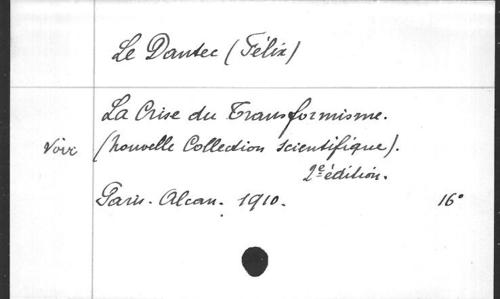 Le Dantec (Félix)
La Crise du Transformisme.
Voir (Nouvelle Collection scientifique).
2e édition.
Paris. Alcan. 1910. 16°